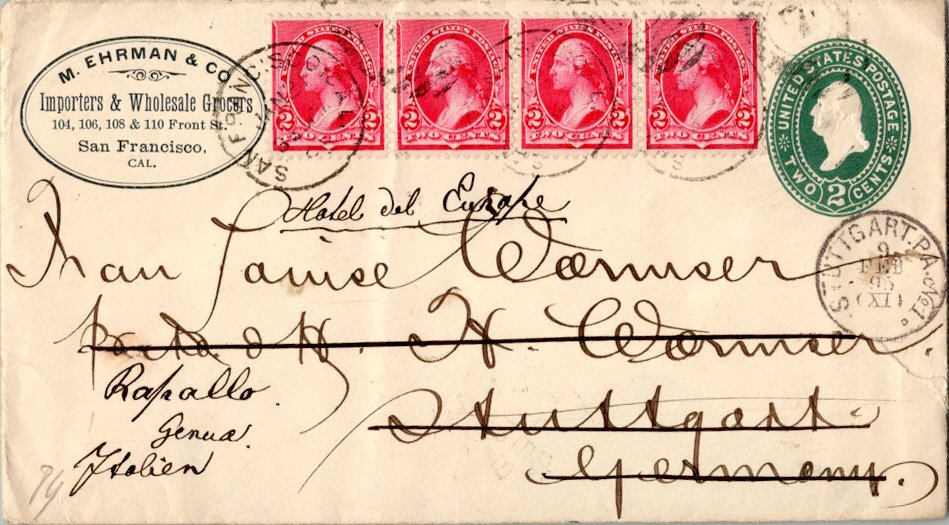 M. EHRMAN & CO.
Importers & Wholesale Grocers
104, 106, 108 & 110 Front St.
San Francisco,
CAL.
UNITED STATES POSTAGE
2 2
TWO CENTS
UNITED STATES POSTAGE
2 2
TWO CENTS
UNITED STATES POSTAGE
2 2
TWO CENTS
UNITED STATES POSTAGE
2 2
TWO CENTS
UNITED STATES POSTAGE
TWO 2 CENTS
SAN FRANCISCO, CAL.
Hotel del Europe
STUTTGART. P.A. No 1
9
FEB
95
(XI)
Frau Louise Wormser
H. Wormser
Stuttgart
Germany.
Rapallo.
Genua
Italien